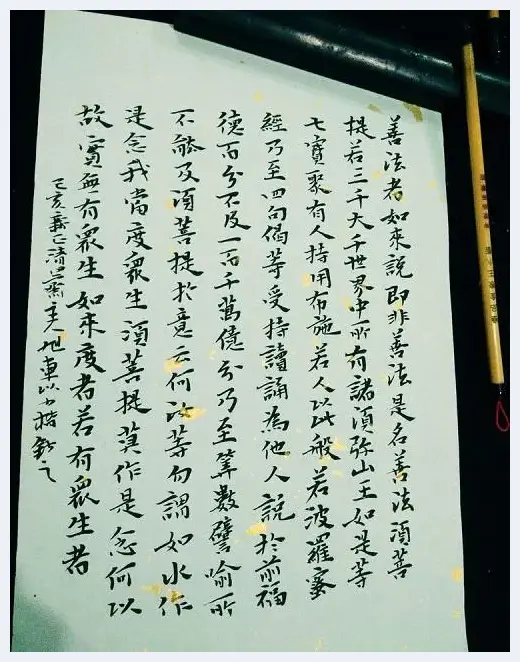 善法者如來說即非善法是名善法須菩
提若三千大千世界中所有諸須弥山王如是等
七寶聚有人持用布施若人以此般若波羅蜜
經乃至四句偈等受持讀誦為他人說於前福
德百分不及一百千萬億分乃至筭數譬喻所
不能及須菩提於意云何汝等勿謂如来作
是念我當度衆生須菩提莫作是念何以
故實無有衆生如來度者若有衆生者
己亥新正清主人旭東以小楷錄之